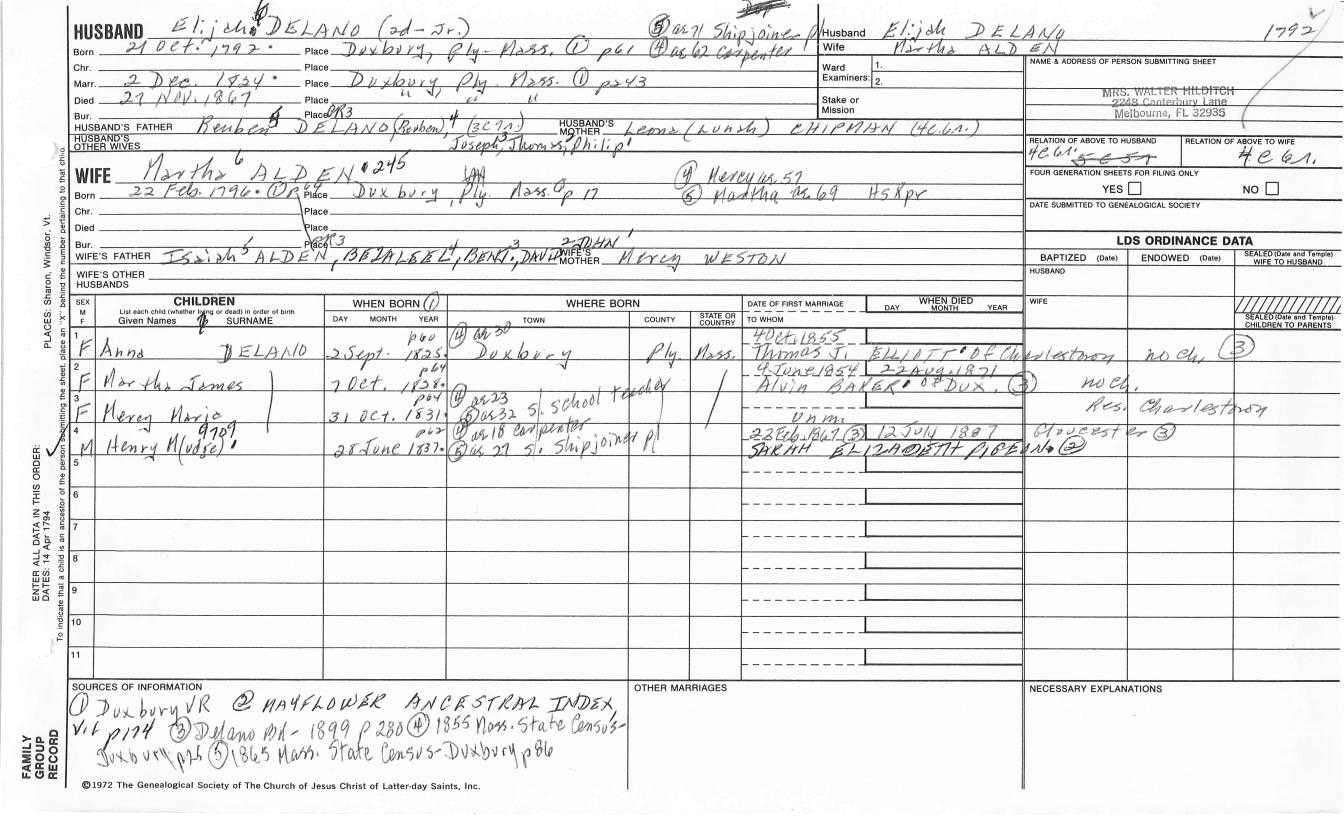 HUSBAND Elijah 6 DELANO (2d - Jr.) ⑤ as 71 Shipjoiner
Born 21 Oct. 1792. Place Duxbury, Ply-Mass. ① p61 ④ as 62 carpenter
Chr. Place
Marr. 2 Dec. 1824. Place Duxbury, Ply. Mass. ① p243
Died 27 NOV. 1867 Place " " "
Bur. Place
HUSBAND'S FATHER Reuben 5 DELANO (Reuben) 4 (3C7r.) HUSBAND'S MOTHER Leona (Lurah) CHIPMAN (4c6r.)
HUSBAND'S OTHER WIVES Joseph, 3 Thomas, 2 Philip 1
WIFE Martha 6 ALDEN 245 ④ Mercy as 57
Born 22 Feb. 1796. ① Place Duxbury, Ply. Mass. p 17 ⑤ Martha as 69 HsKpr
Chr. Place
Died Place
Bur. Place
WIFE'S FATHER Isaiah 5 ALDEN, BEZALEEL 4, BENJ. 3, DAVID 2 JOHN 1 WIFE'S MOTHER Mercy WESTON
WIFE'S OTHER HUSBANDS
Husband Elijah DELANO 1792
Wife Martha ALDEN
Ward Examiners: 1.
2.
Stake or Mission
NAME & ADDRESS OF PERSON SUBMITTING SHEET
MRS. WALTER HILDITCH
2248 Canterbury Lane
Melbourne, FL 32935
RELATION OF ABOVE TO HUSBAND RELATION OF ABOVE TO WIFE
4c6r. 4c6r.
FOUR GENERATION SHEETS FOR FILING ONLY
YES NO
DATE SUBMITTED TO GENEALOGICAL SOCIETY
LDS ORDINANCE DATA
BAPTIZED (Date) ENDOWED (Date) SEALED (Date and Temple) WIFE TO HUSBAND
HUSBAND
WIFE
SEALED (Date and Temple) CHILDREN TO PARENTS
SEX M F
CHILDREN
List each child (whether living or dead) in order of birth
Given Names SURNAME
WHEN BORN ①
DAY MONTH YEAR
WHERE BORN
TOWN COUNTY STATE OR COUNTRY
DATE OF FIRST MARRIAGE
TO WHOM
WHEN DIED
DAY MONTH YEAR
1 p60 ④ as 30 4 Oct. 1855
F Anna DELANO 2 Sept. 1825. Duxbury Ply. Mass. Thomas J. ELLIOTT of Charlestown no ch. ③
2 p64 9 June 1854 22 Aug. 1871
F Martha James 7 Oct. 1828. Alvin BAKER of Dux. ③ no ch.
3 p64 ④ as 23 Res. Charlestown
F Mercy Marie 31 Oct. 1831. ⑤ as 32 s. school teacher unm.
4 9709 p62 ④ as 18 carpenter 22 Feb. 1867 ③ 12 July 1887 Gloucester ③
M Henry M(udge) 28 June 1837. ⑤ as 27 s. Shipjoiner SARAH ELIZABETH PIGEON. ②
5
6
7
8
9
10
11
SOURCES OF INFORMATION
① Duxbury VR ② MAYFLOWER ANCESTRAL INDEX,
V.1 p174 ③ Delano BK - 1899 p 280 ④ 1855 Mass. State Census-
Duxbury p25 ⑤ 1865 Mass. State Census-Duxbury p86
OTHER MARRIAGES
NECESSARY EXPLANATIONS
©1972 The Genealogical Society of The Church of Jesus Christ of Latter-day Saints, Inc.
FAMILY GROUP RECORD
ENTER ALL DATA IN THIS ORDER:
DATES: 14 Apr 1794
PLACES: Sharon, Windsor, Vt.
To indicate that a child is an ancestor of the person submitting the sheet, place an "X" behind the number pertaining to that child.